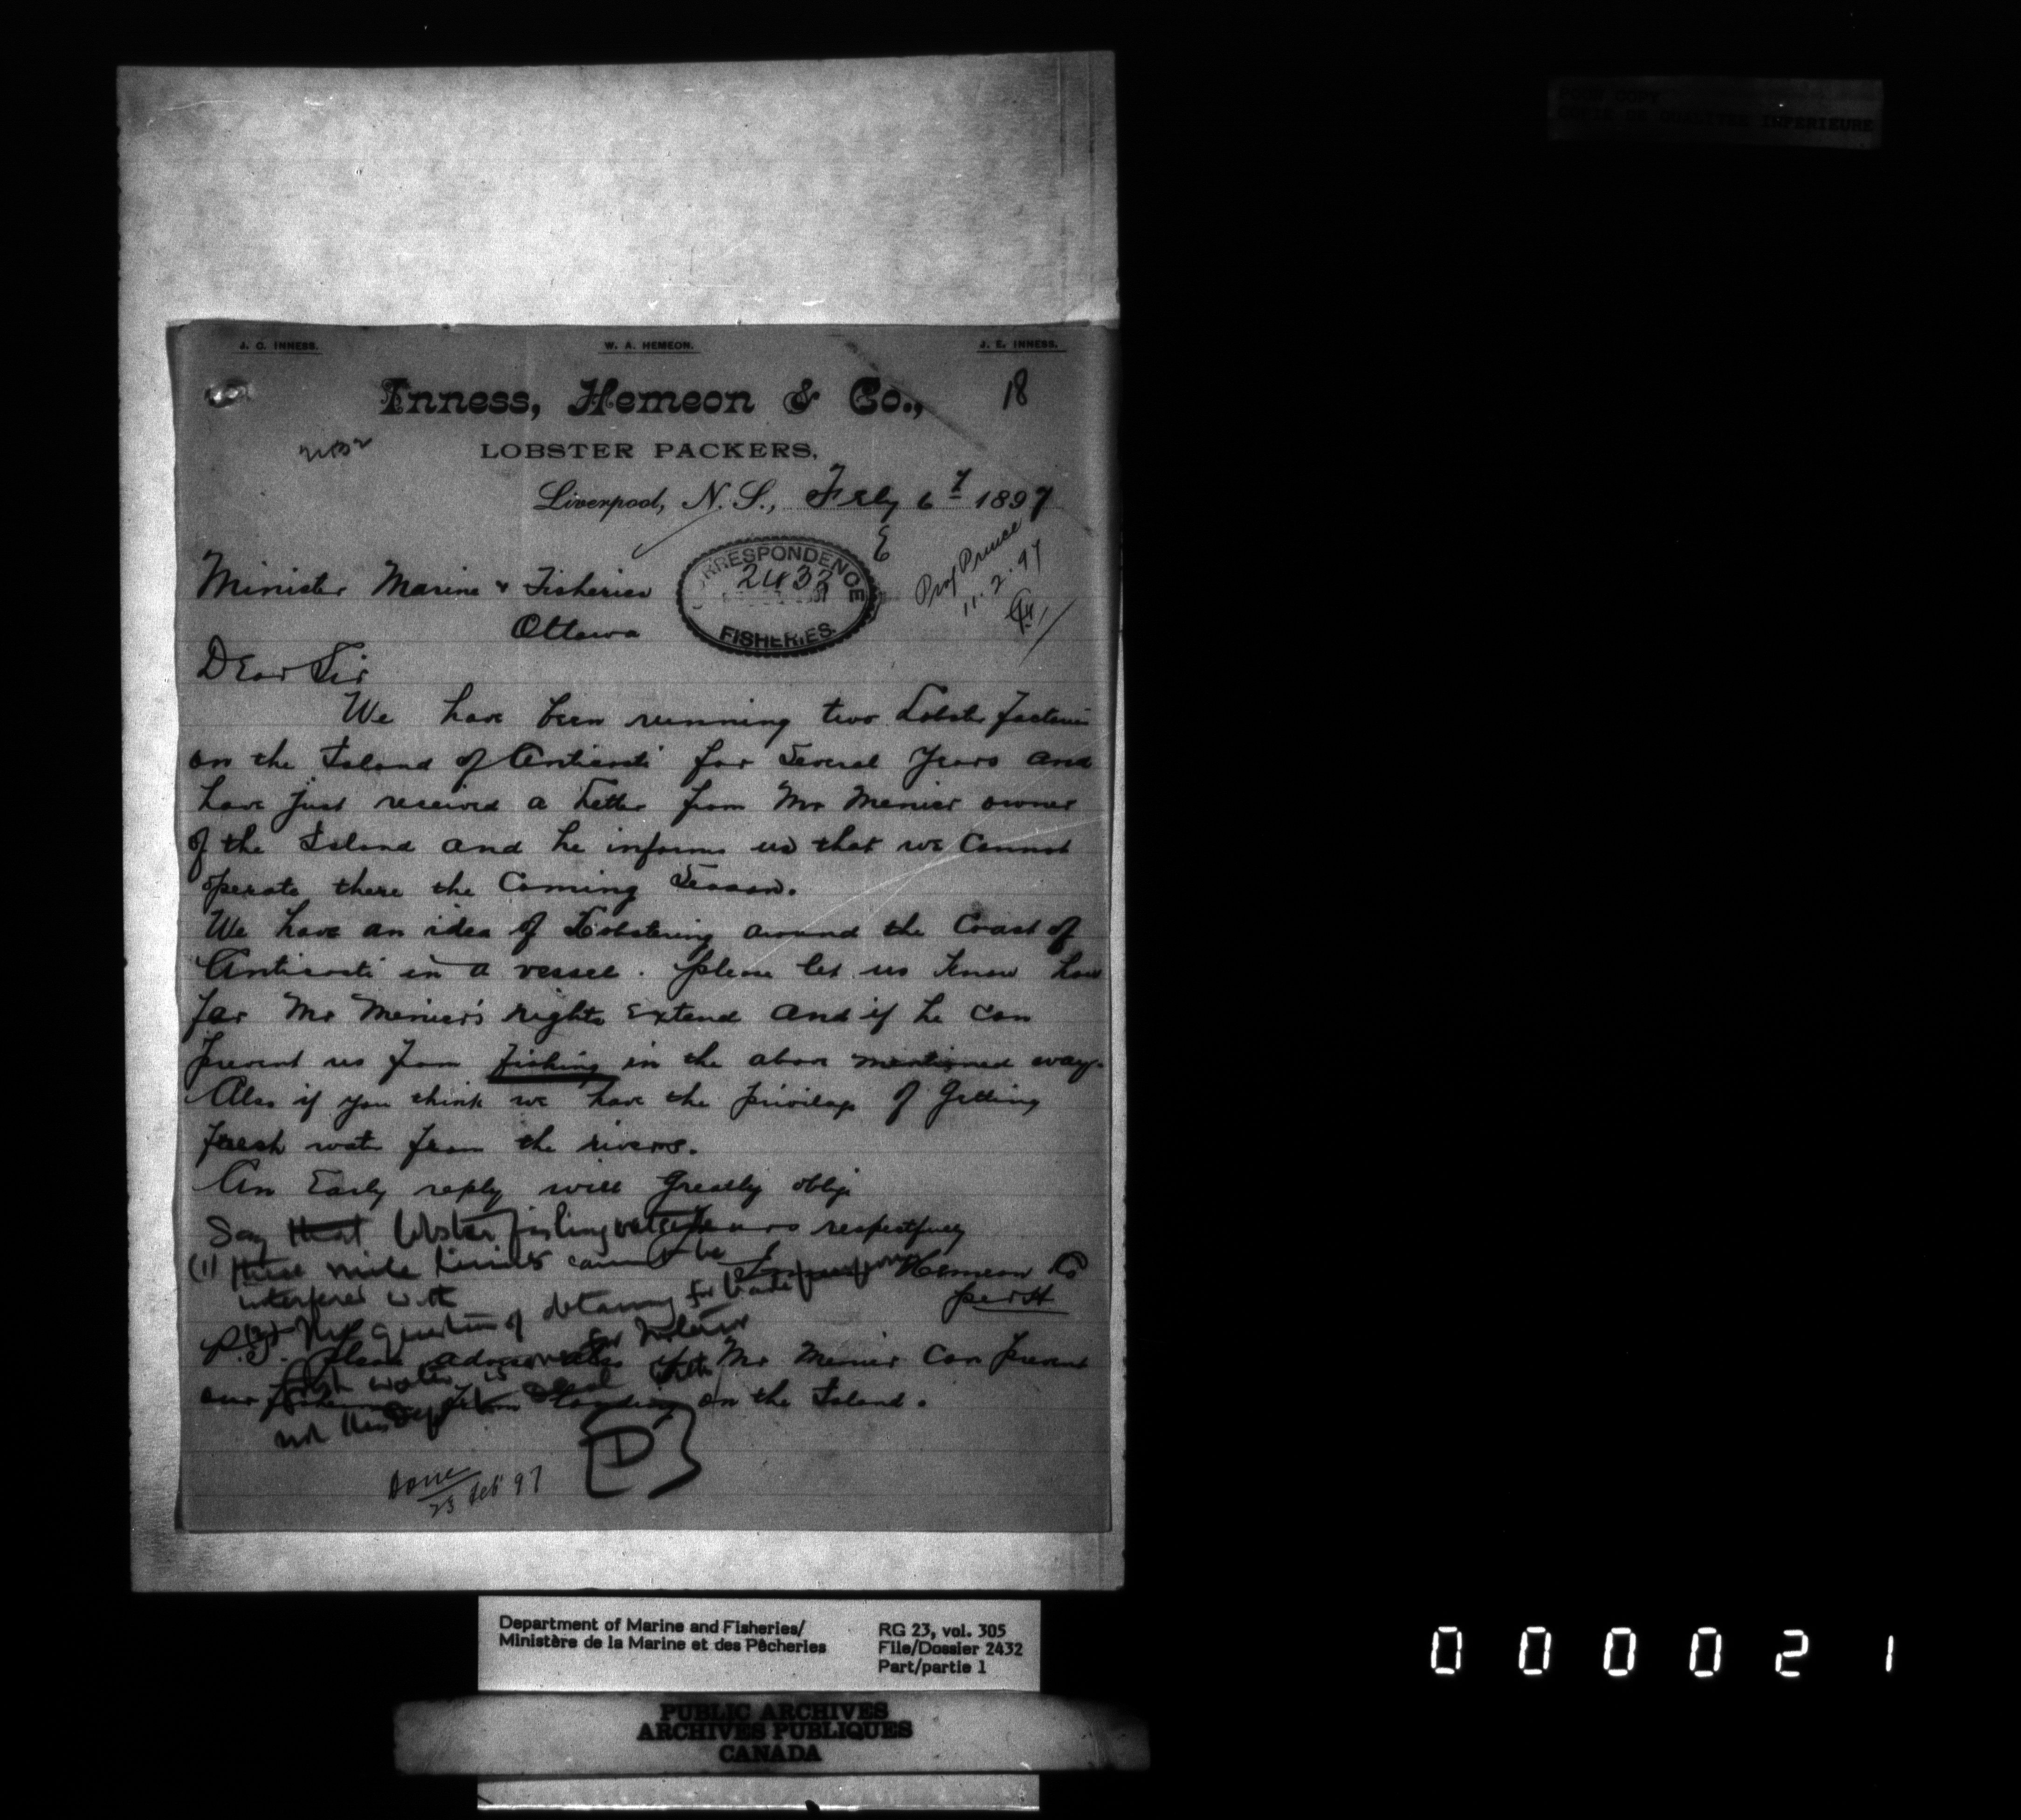 POOR COPY
COPIE DE QUALITEE INFERIEURE
J. C. INNESS. W. A. HEMEON. J. E. INNESS.
Inness, Hemeon & Co.,
18
LOBSTER PACKERS,
2432
Liverpool, N. S., Feby 6 1897
E
CORRESPONDENCE
2432
FISHERIES
Prof Prince
11.2.97
Minister Marine & Fisheries
Ottawa
Dear Sir
We have been running two Lobster factories
on the Island of Anticosti for Several Years and
have just received a Letter from Mr Menier owner
of the Island and he informs us that we Cannot
operate there the Coming Season.
We have an idea of Lobstering around the Coast of
Anticosti in a vessel. please let us know how
far Mr Menier's rights Extend and if he Can
prevent us from fishing in the above mentioned way.
Also if you think we have the privilage of Getting
fresh water from the rivers.
An Early reply will Greatly oblige
Yours respectfully
Inness Hemeon & Co
per H
P.S. Please advise us if Mr Menier Can prevent
our fishermen from landing on the Island.
Say that lobster fishing within
(1) three mile limits cannot be
interfered with
(2) The question of obtaining for
fresh water is
not this Dept
D
Done
23 Feb 97
Department of Marine and Fisheries/
Ministère de la Marine et des Pêcheries
RG 23, vol. 305
File/Dossier 2432
Part/partie 1
PUBLIC ARCHIVES
ARCHIVES PUBLIQUES
CANADA
000021